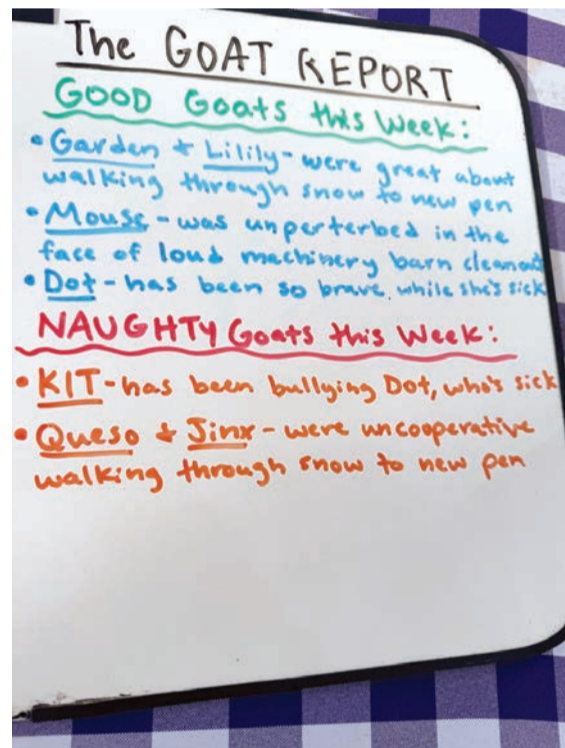 The GOAT REPORT
GOOD Goats this Week:
• Garden & Lilily - were great about
walking through snow to new pen
• Mouse - was unperterbed in the
face of loud machinery barn cleanout
• Dot - has been so brave while she's sick
NAUGHTY Goats this Week:
• KIT - has been bullying Dot, who's sick
• Queso & Jinx - were uncooperative
walking through snow to new pen